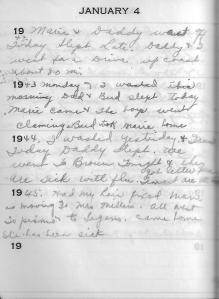 JANUARY 4
19 Marie & Daddy went of
Today Slept Late. Daddy & I
went for a Drive. up coast
about 70 mi.
1943 Monday I washed this
morning Dad & Bud slept today
Marie came & the boys went
Claming. Bud took Marie home
1944. I washed yesterday &
Today Daddy Slept. We
went To Browns Tonight & they
are Sick with flu.
got letter from
1945. Had my hair fixed Marie
is moving To Mrs Millers. all went
To to came home
has been sick
19